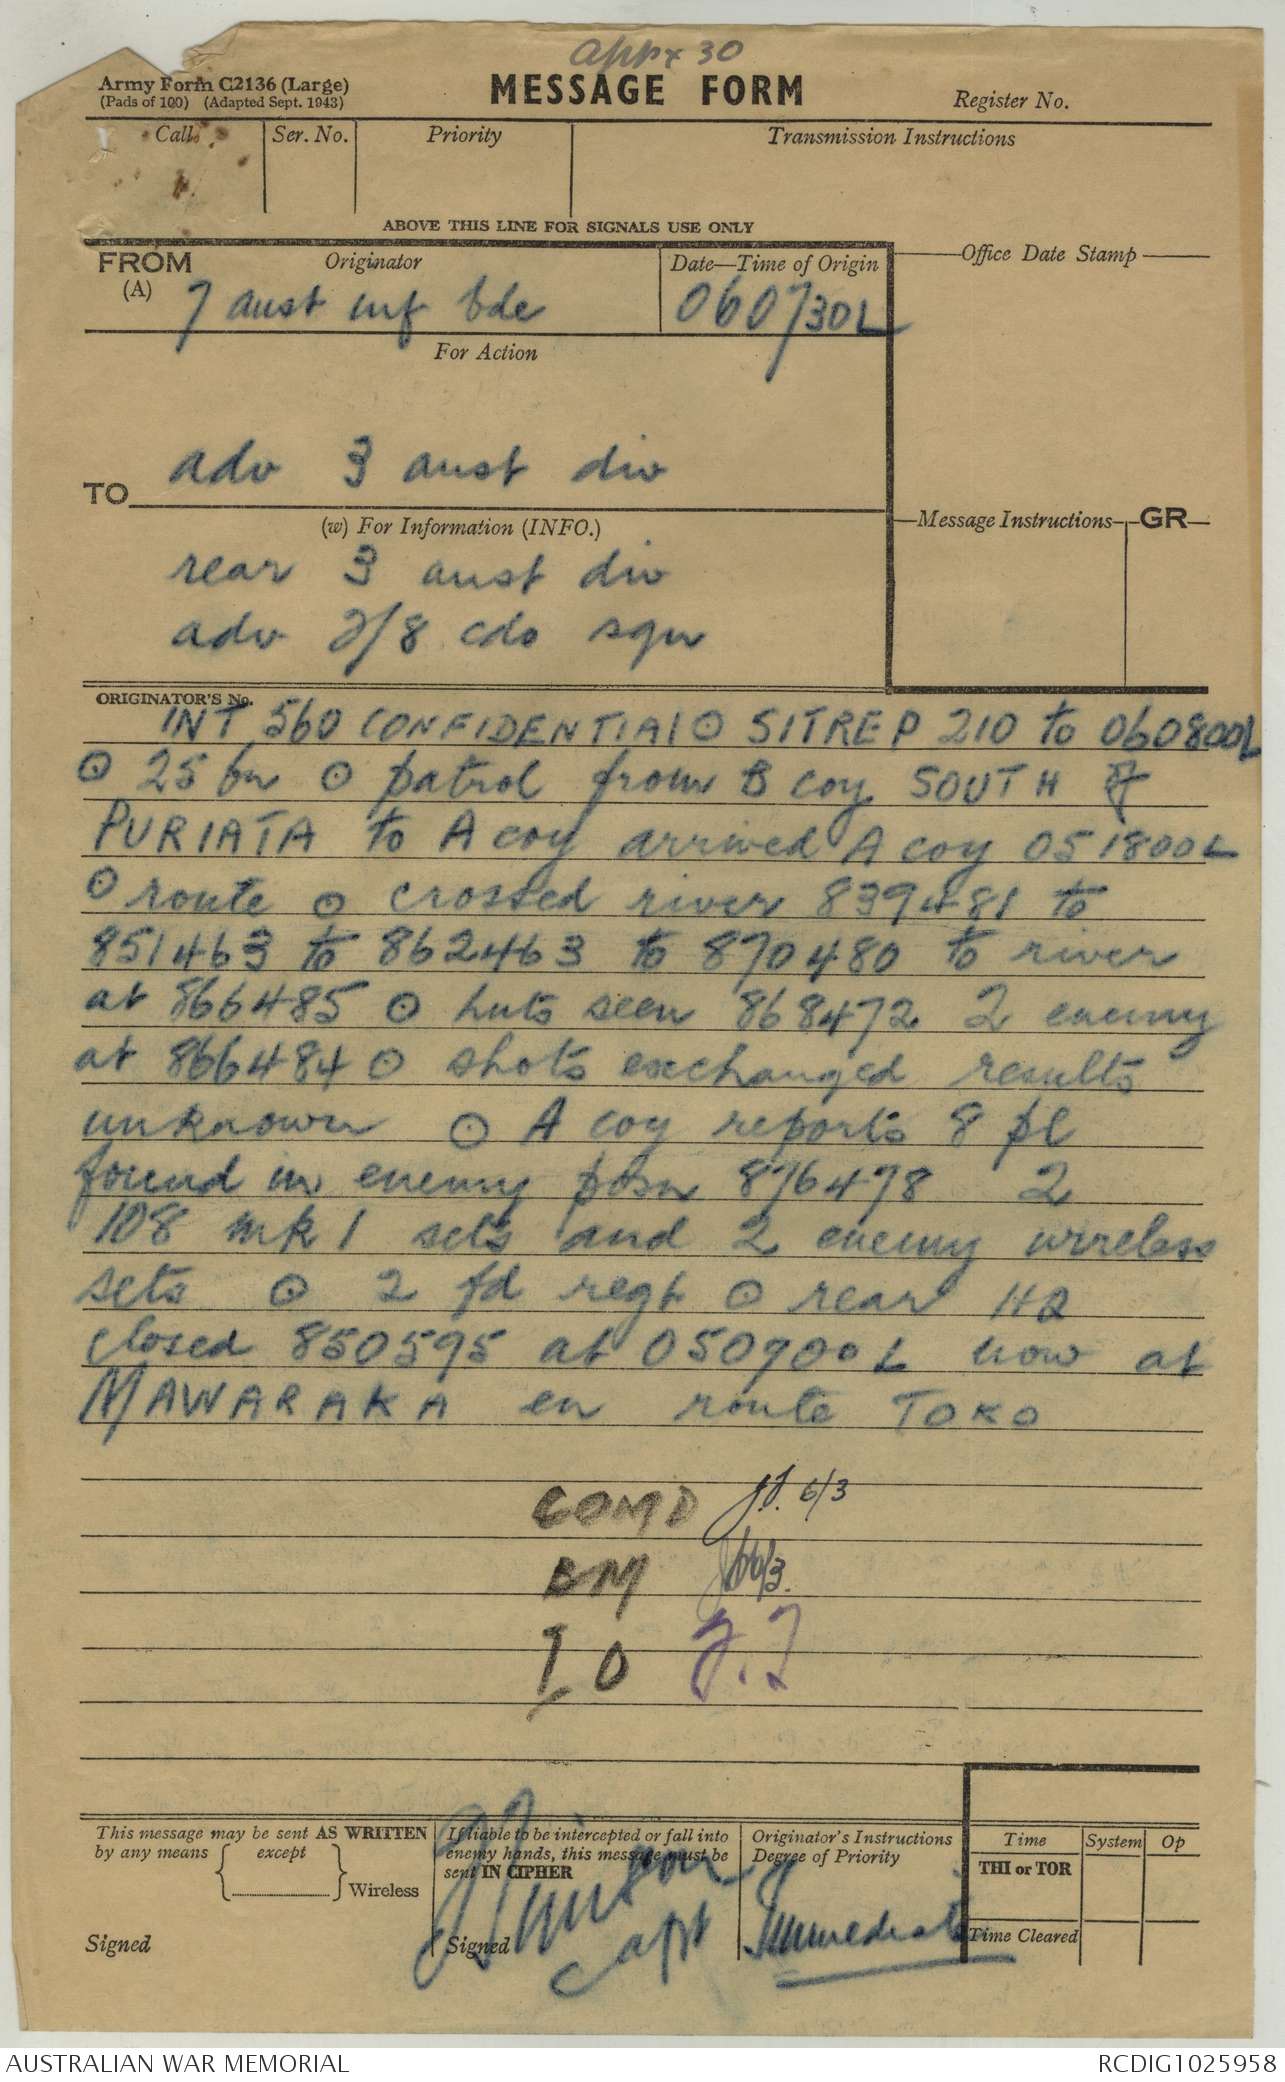 appx 30
Army Form C2136 (Large)
(Pads of 100) (Adapted Sept. 1943)
MESSAGE FORM
Register No.
Call
Ser. No.
Priority
Transmission Instructions
ABOVE THIS LINE FOR SIGNALS USE ONLY
FROM
(A)
Originator
Date—Time of Origin
Office Date Stamp
7 aust inf bde
060730L
For Action
adv 3 aust div
TO
(w) For Information (INFO.)
Message Instructions
GR
rear 3 aust div
adv 2/8 cdo sqn
ORIGINATOR'S No.
INT 560 CONFIDENTIAL ⊙ SITREP 210 to 060800L
⊙ 25 bn ⊙ patrol from B coy SOUTH of
PURIATA to A coy arrived A coy 051800L
⊙ route ⊙ crossed river 839481 to
851463 to 862463 to 870480 to river
at 866485 ⊙ huts seen 868472 2 enemy
at 866484 ⊙ shots exchanged results
unknown ⊙ A coy reports 8 pl
found in enemy posn 876478 2
108 mk 1 sets and 2 enemy wireless
sets ⊙ 2 fd regt ⊙ rear HQ
closed 850595 at 050900L now at
MAWARAKA en route TOKO
COMD 6/3
BM 6/3.
IO
This message may be sent AS WRITTEN
by any means
except
Wireless
Signed
If liable to be intercepted or fall into
enemy hands, this message must be
sent IN CIPHER
Signed
Capt
Originator's Instructions
Degree of Priority
Immediate
Time
System
Op
THI or TOR
Time Cleared
AUSTRALIAN WAR MEMORIAL
RCDIG1025958